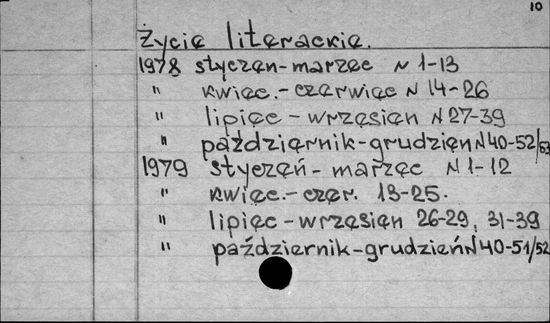 10
Życie literackie.
1978 styczeń-marzec N 1-13
" kwiec.-czerwiec N 14-26
" lipiec-wrzesien N 27-39
" październik-grudzień N 40-52/53
1979 styczeń-marzec N 1-12
" kwiec.-czer. 13-25.
" lipiec-wrzesien 26-29, 31-39
" październik-grudzień N 40-51/52